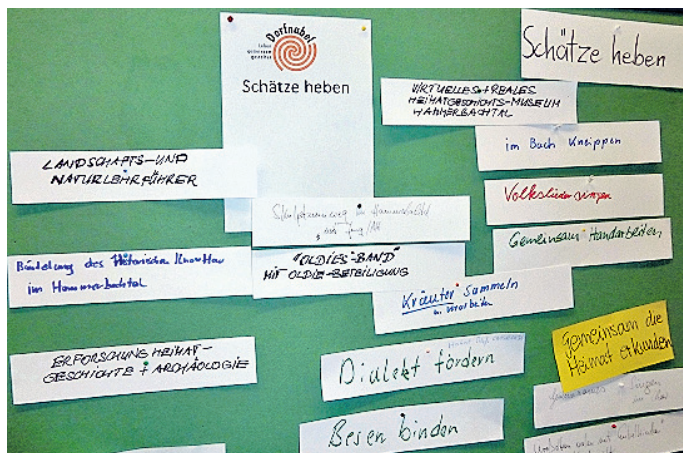 Dorfnabel
Schätze heben
Schätze heben
VIRTUELLES + REALES
HEIMATGESCHICHTS-MUSEUM
HAMMERBACHTAL
im Bach Kneippen
LANDSCHAFTS- UND
NATURLEHRFÜHRER
Volksliedersingen
Skulpturenweg im Hammerbachtal
Gemeinsam Handarbeiten
"OLDIES-BAND"
MIT OLDIE-BETEILIGUNG
Bündelung des Historischen KnowHow
im Hammerbachtal
Kräuter sammeln
u. verarbeiten
Gemeinsam die
Heimat erkunden
ERFORSCHUNG HEIMAT-
GESCHICHTE + ARCHÄOLOGIE
Dialekt fördern
Besen binden